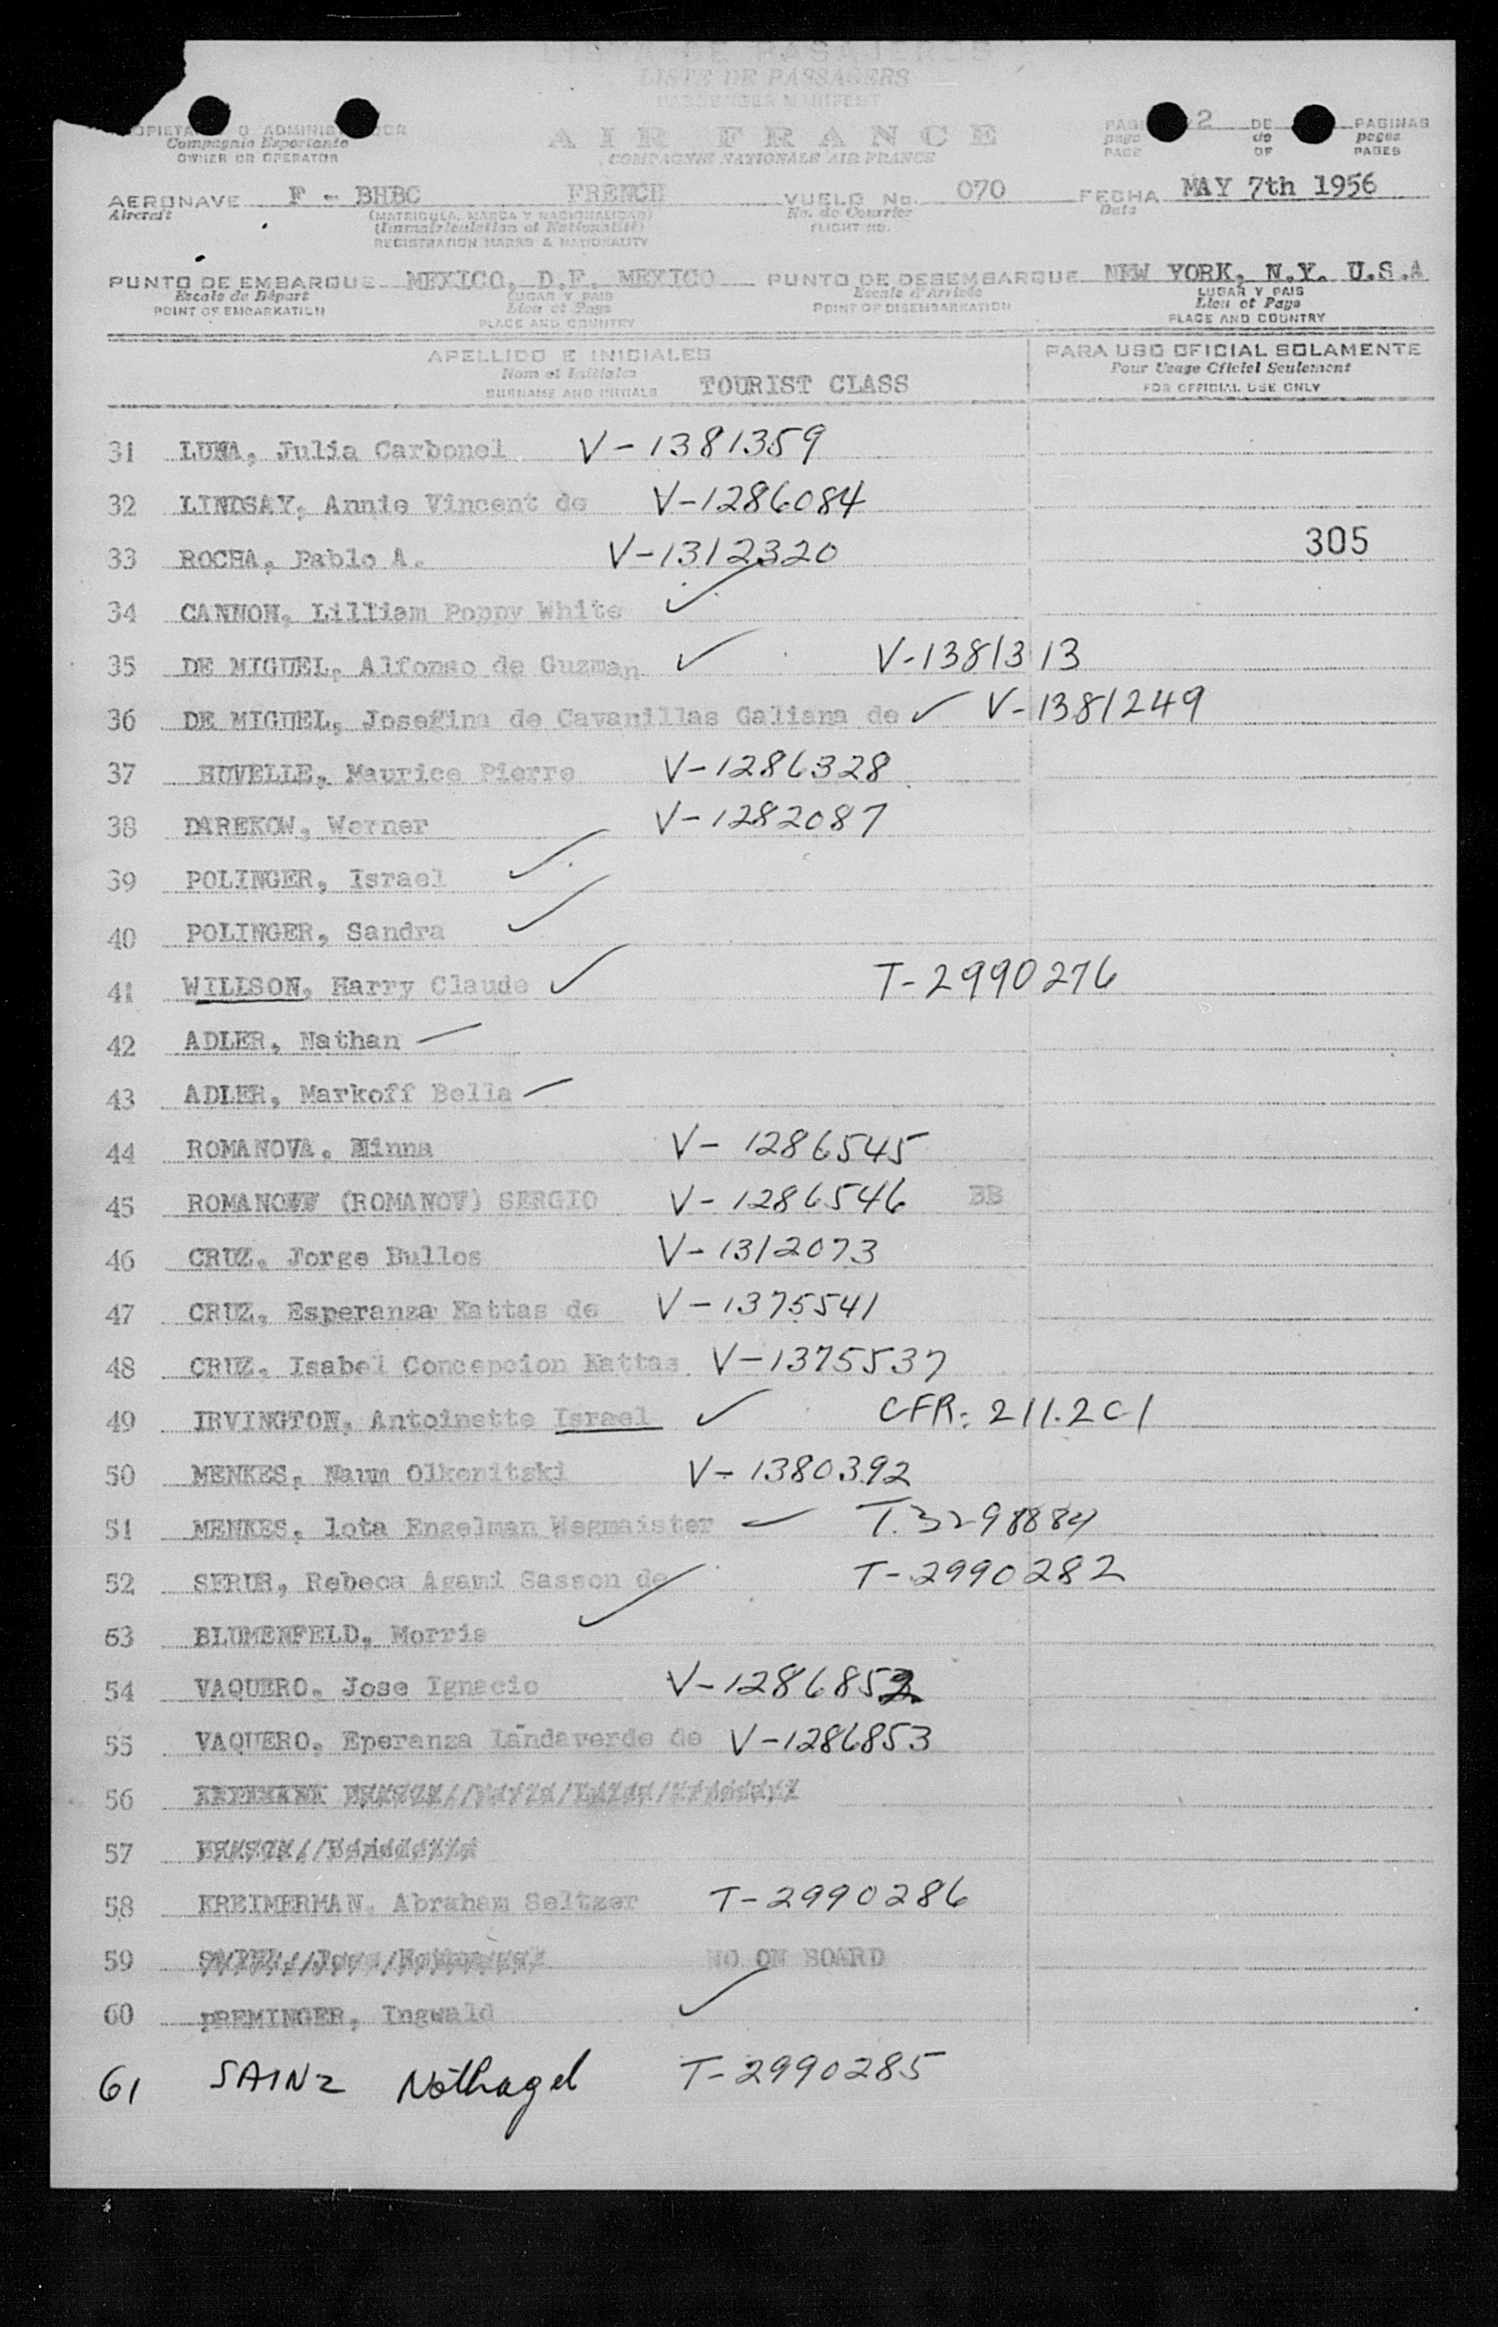 LISTA DE PASAJEROS
LISTE DE PASSAGERS
PASSENGER MANIFEST
AIR FRANCE
COMPAGNIE NATIONALE AIR FRANCE
Compagnie Exportante
OWNER OR OPERATOR
2 DE PAGINAS
page de pages
PAGE OF PAGES
AERONAVE F - BHBC FRENCH VUELO No. 070 FECHA MAY 7th 1956
Aircraft (MATRICULA, MARCA Y NACIONALIDAD) No. de Courrier Date
(Immatriculation et Nationalité) FLIGHT NO.
REGISTRATION MARKS & NATIONALITY
PUNTO DE EMBARQUE MEXICO, D.F. MEXICO PUNTO DE DESEMBARQUE NEW YORK, N.Y. U.S.A
Escale de Départ LUGAR Y PAIS Escale d'Arrivée LUGAR Y PAIS
POINT OF EMBARKATION Lieu et Pays POINT OF DISEMBARKATION Lieu et Pays
PLACE AND COUNTRY PLACE AND COUNTRY
APELLIDO E INICIALES PARA USO OFICIAL SOLAMENTE
Nom et Initiales Pour Usage Officiel Seulement
SURNAME AND INITIALS TOURIST CLASS FOR OFFICIAL USE ONLY
31 LUNA, Julia Carbonel V-1381359
32 LINDSAY, Annie Vincent de V-1286084
33 ROCHA, Pablo A. V-1312320 305
34 CANNON, Lilliam Poppy White ✓
35 DE MIGUEL, Alfonso de Guzman ✓ V-1381313
36 DE MIGUEL, Josefina de Cavanillas Galiana de ✓ V-1381249
37 HUVELLE, Maurice Pierre V-1286328
38 DAREKOW, Werner V-1282087
39 POLINGER, Israel ✓
40 POLINGER, Sandra ✓
41 WILLSON, Harry Claude ✓ T-2990276
42 ADLER, Nathan
43 ADLER, Markoff Bella
44 ROMANOVA, Minna V-1286545
45 (ROMANOV) SERGIO V-1286546 BB
46 CRUZ, Jorge Bullos V-1312073
47 CRUZ, Esperanza Kattas de V-1375541
48 CRUZ, Isabel Concepcion Kattas V-1375537
49 IRVINGTON, Antoinette Israel ✓ CFR: 211.2C1
50 MENKES, Naum Olkenitski V-1380392
51 MENKES, lota Engelman Wegmaister ✓ T.3298884
52 SERUR, Rebeca Agami Sasson de T-2990282
53 BLUMENFELD, Morris ✓
54 VAQUERO, Jose Ignacio V-1286852
55 VAQUERO, Eperanza Landaverde de V-1286853
56
57
58 KREIMERMAN, Abraham Seltzer T-2990286
59 NO ON BOARD
60 pREMINGER, Ingwald ✓
61 SAINZ Nothagel T-2990285